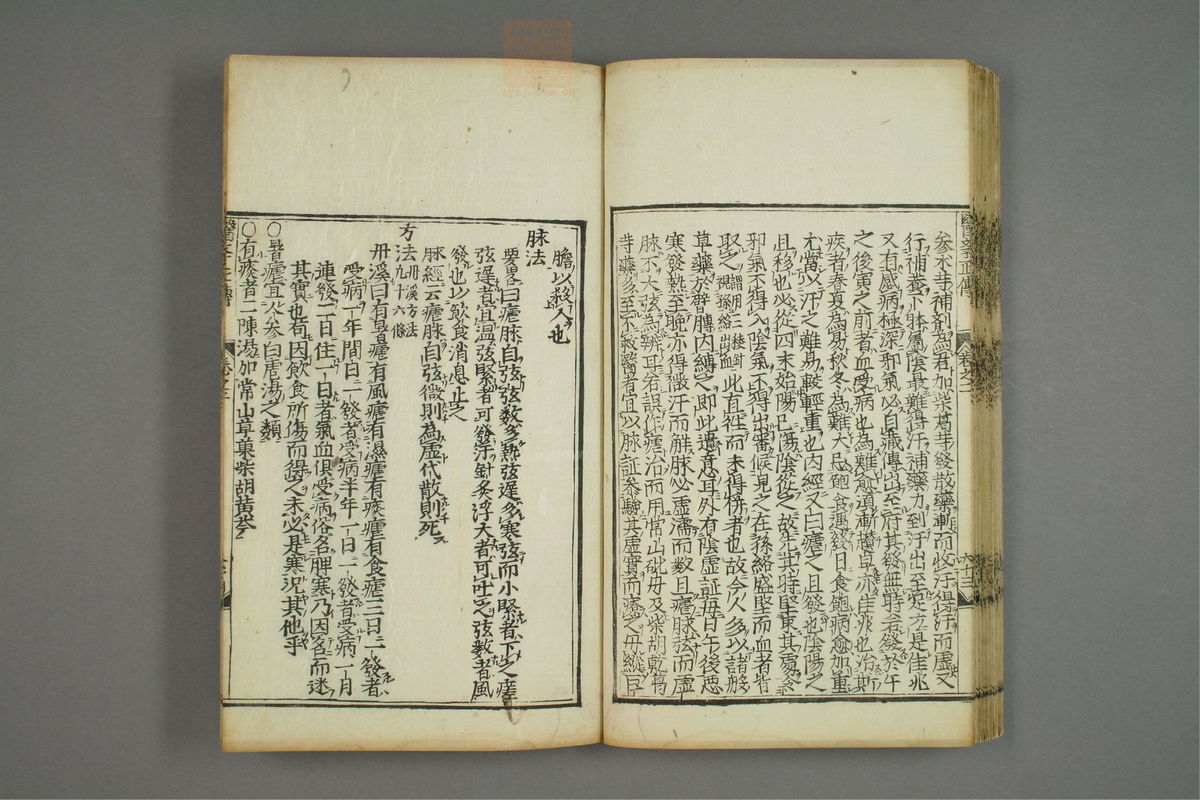 參朮等補劑為君加柴葛等發散藥漸而收汗得汗而虛又
行補養下體屬陰最難得汗補藥力到汗出至足方是佳兆
又有感病極深邪氣必自臟傳出至府其發無時若發於午
之後寅之前者血受病也為難愈須漸趲早亦佳兆也治其
疾者春夏為易秋冬為難大忌飽食遇發日食飽病愈加重
尤當以汗之難易較輕重也內經又曰瘧之且發也陰陽之
且移也必從四末始陽已傷陰從之故先其時堅束其處令
邪氣不得入陰氣不得出審候見之在孫絡盛堅而血者皆
取之 謂用三稜針視孫絡出血 此直往而未得併者也故今人多以諸般
草藥於臂膊內縛之即此遺意耳外有陰虛証每日午後惡
寒發熱至晚亦得微汗而解脉必虛濡而數且瘧脉弦而虛
脉不大弦為辨耳若誤作瘧治而用常山砒毋及柴胡乾葛
等藥多至不救醫者宜以脉証參驗其虛實而療之毋縱巨
膽以殺人也
脉法
要畧曰瘧脉自弦弦數多熱弦遲多寒弦而小緊者下之瘥
弦遲者宜溫弦緊者可發汗針灸浮大者可吐之弦數者風
發也以飲食消息止之
脉經云瘧脉自弦微則為虛代散則死
方法 丹溪方法凡十六條
丹溪曰有暑瘧有風瘧有濕瘧有痰瘧有食瘧三日一發者
受病一年間日一發者受病半年一日一發者受病一月
連發二日住一日者氣血俱受病俗名脾寒乃因名而迷
其實也苟因飲食所傷而得之未必是寒況其他乎
○暑瘧宜人參白虎湯之類
○有痰者二陳湯加常山草菓柴胡黃芩
醫學正傳
卷之二
六十二
醫學正傳
卷之二